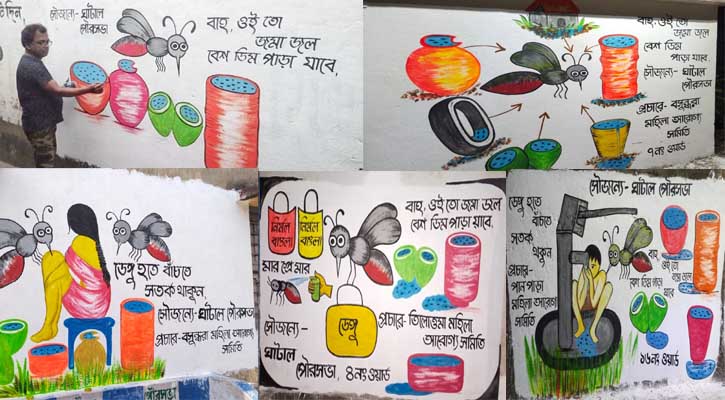 সৌজন্যে- ঘাটাল
পৌরসভা
বাহ, ওই তো
জমা জলে
বেশ ডিম পাড়া যাবে,
বাহ, ওই তো
জমা জলে
বেশ ডিম
পাড়া যাবে.
সৌজন্যে- ঘাটাল
পৌরসভা
প্রচারে- বসুন্ধরা
মহিলা আরোগ্য
সমিতি
৭নং ওয়ার্ড
ডেঙ্গু হতে বাঁচতে
সতর্ক থাকুন
সৌজন্যে- ঘাটাল পৌরসভা
প্রচার- বসুন্ধরা মহিলা আরোগ্য
সমিতি
পৌরসভা
বাহ, ওই তো জমা জলে
বেশ ডিম পাড়া যাবে,
নির্মল
বাংলা
নির্মল
বাংলা
মার স্প্রে মার
ডেঙ্গু
সৌজন্যে-
ঘাটাল
পৌরসভা, ৪নং ওয়ার্ড
প্রচার- তিলোত্তমা মহিলা
আরোগ্য সমিতি
সৌজন্যে- ঘাটাল পৌরসভা
ডেঙ্গু হতে
বাঁচতে
সতর্ক
থাকুন
প্রচার-
পান পাড়া
মহিলা আরোগ্য
সমিতি
বাহ,
ওই তো
জমা জলে
বেশ ডিম পাড়া
যাবে
১৬নং ওয়ার্ড